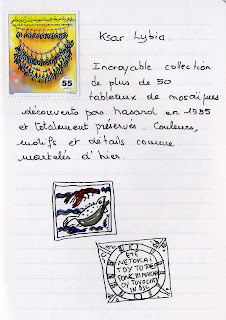 55
Ksar Lybia.
Incroyable collection
de plus de 50
tableaux de mosaïques
découverts par hasard en 1955
et totalement préservés. Couleurs,
motifs et détails comme
d'hier.
ETE
NETOKAI
TOY TO ΠΕ
IN Δ ΙΓ